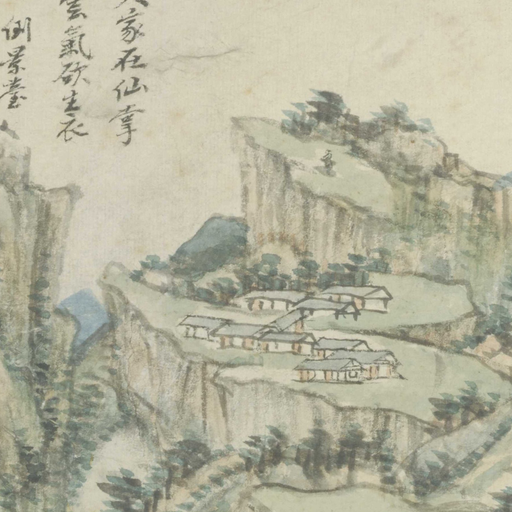 人家在仙掌
雲氣欲生衣
倒景臺